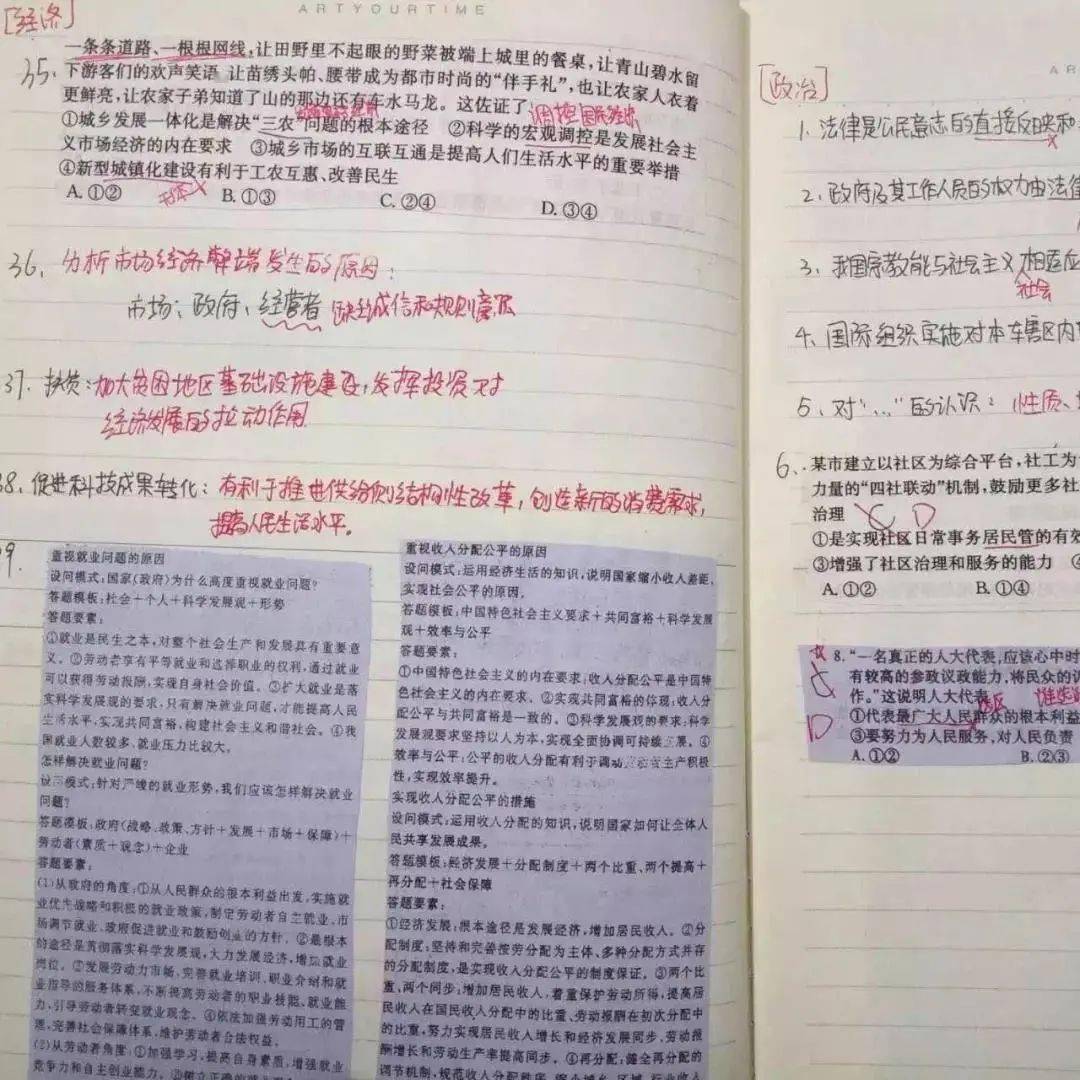 ARTYOURTIME
[经济]
35.
一条条道路、一根根网线,让田野里不起眼的野菜被端上城里的餐桌,让青山碧水留
下游客们的欢声笑语 让苗绣头帕、腰带成为都市时尚的“伴手礼”,也让农家人衣着
更鲜亮,让农家子弟知道了山的那边还有车水马龙。这佐证了
调控国民经济
①城乡发展一体化是解决“三农”问题的根本途径 ②科学的宏观调控是发展社会主
义市场经济的内在要求 ③城乡市场的互联互通是提高人们生活水平的重要举措
④新型城镇化建设有利于工农互惠、改善民生
A.①② B.①③ C.②④ D.③④
36. 分析市场经济弊端发生的原因:
市场; 政府; 经营者 缺丝诚信和规则意识
37. 扶贫:加大贫困地区基础设施建设,发挥投资对
经济发展的拉动作用
38. 促进科技成果转化: 有利于推进供给侧结构性改革, 创造新的消费需求,
提高人民生活水平。
重视就业问题的原因
设问模式:国家(政府)为什么高度重视就业问题?
答题模板:社会+个人+科学发展观+形势
答题要素:
①就业是民生之本,对整个社会生产和发展具有重要意
义。②劳动者享有平等就业和选择职业的权利,通过就业
可以获得劳动报酬,实现自身社会价值。③扩大就业是落
实科学发展观的要求,只有解决就业问题,才能提高人民
生活水平,实现共同富裕,构建社会主义和谐社会。④我
国就业人数较多、就业压力比较大。
怎样解决就业问题?
设问模式:针对严峻的就业形势,我们应该怎样解决就业
问题?
答题模板:政府(战略、政策、方针+发展+市场+保障)+
劳动者(素质+观念)+企业
答题要素:
(1)从政府的角度:①从人民群众的根本利益出发,实施就
业优先战略和积极的就业政策,制定劳动者自主就业、市
场调节就业、政府促进就业和鼓励创业的方针。②最根本
的途径是贯彻落实科学发展观,大力发展经济,增加就业
岗位。③发展劳动力市场,完善就业培训、职业介绍和就
业指导的服务体系,不断提高劳动者的职业技能、就业能
力,引导劳动者转变就业观念。④依法加强劳动用工的管
理,完善社会保障体系,维护劳动者合法权益。
(2)从劳动者角度:①加强学习,提高自身素质,增强就业
竞争力和自主创业能力。
重视收入分配公平的原因
设问模式:运用经济生活的知识,说明国家缩小收入差距、
实现社会公平的原因。
答题模板:中国特色社会主义要求+共同富裕+科学发展
观+效率与公平
答题要素:
①中国特色社会主义的内在要求,收入分配公平是中国特
色社会主义的内在要求。②实现共同富裕的体现:收入分
配公平与共同富裕是一致的。③科学发展观的要求:科学
发展观要求坚持以人为本,实现全面协调可持续发展。④
效率与公平:公平的收入分配有利于调动劳动者生产积极
性,实现效率提升。
实现收入分配公平的措施
设问模式:运用收入分配的知识,说明国家如何让全体人
民共享发展成果。
答题模板:经济发展+分配制度+两个比重、两个提高+
再分配+社会保障
答题要素:
①经济发展:根本途径是发展经济,增加居民收入。②分
配制度:坚持和完善按劳分配为主体、多种分配方式并存
的分配制度,是实现收入分配公平的制度保证。③两个比
重,两个同步:增加居民收入,着重保护劳动所得,提高居
民收入在国民收入分配中的比重、劳动报酬在初次分配中
的比重,努力实现居民收入增长和经济发展同步、劳动报
酬增长和劳动生产率提高同步。④再分配:健全再分配的
调节机制,规范收入分配秩序,缩小城乡、区域、行业收入
AR
[政治]
1. 法律是公民意志的直接反映和
2. 政府及其工作人员的权力由法律
3. 我国宗教能与社会主义相适应
社会
4. 国际组织实施对本辖区内
5. 对“…”的认识: 性质、
6. 某市建立以社区为综合平台,社工为
力量的“四社联动”机制,鼓励更多社
治理 C D
①是实现社区日常事务居民管的有效
③增强了社区治理和服务的能力
A.①② B.①④
8.“一名真正的人大代表,应该心中时
有较高的参政议政能力,将民众的
作。”这说明人大代表
选区
①代表最广大人民群众的根本利益
③要努力为人民服务,对人民负责
A.①② B.②③
D